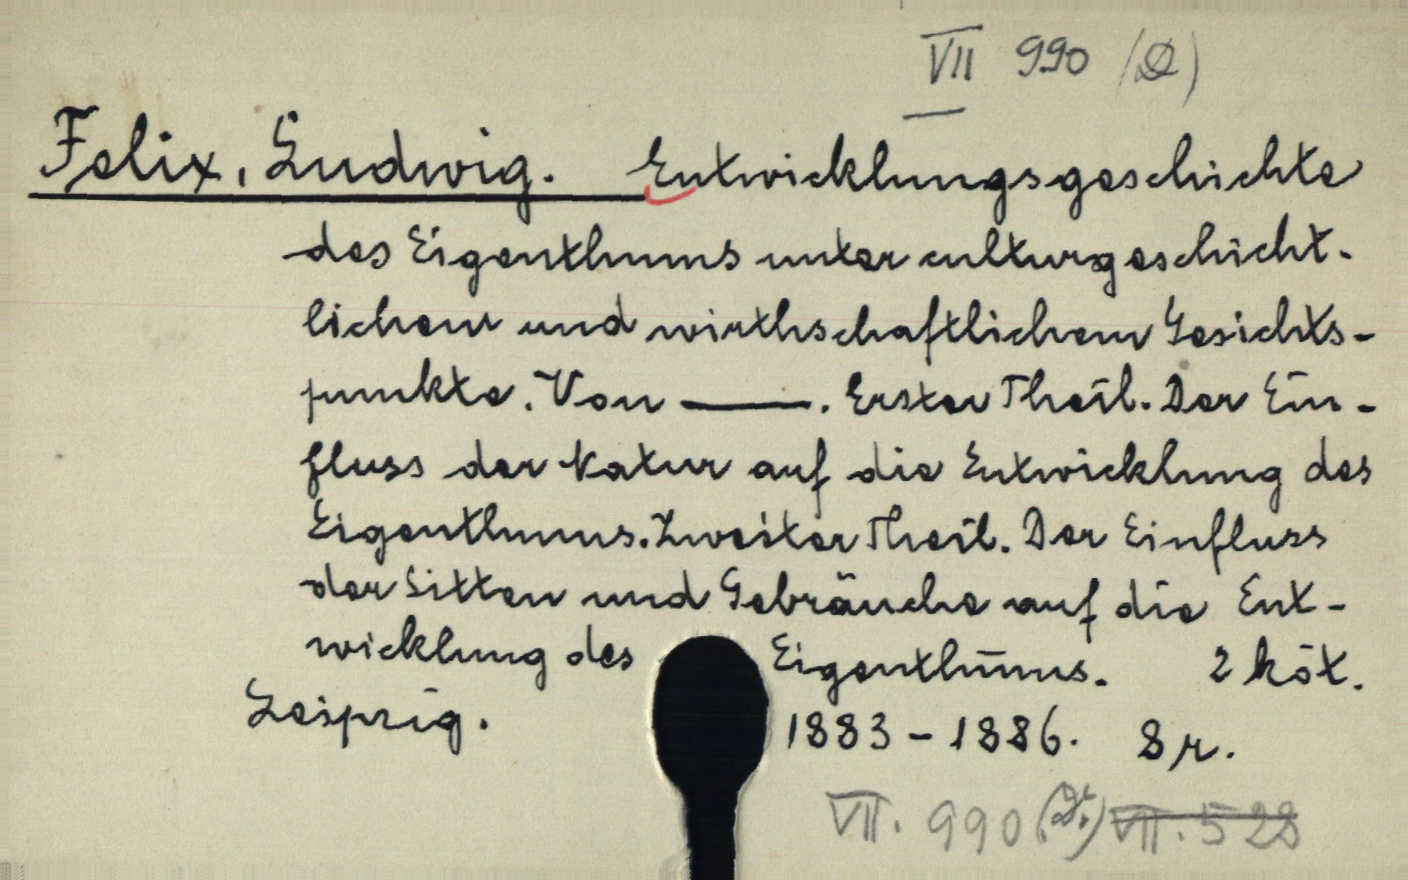 VII 990
Felix, Ludwig. Entwicklungsgeschichte
des Eigenthums unter culturgeschicht-
lichem und wirthschaftlichem Gesichts-
punkte. Von —. Erster Theil. Der Ein-
fluss der Natur auf die Entwicklung des
Eigenthums. Zweiter Theil. Der Einfluss
der Sitten und Gebräuche auf die Ent-
wicklung des Eigenthums. 2 köt.
Leipzig. 1883-1886. 8r.
VII. 990 VII. 528